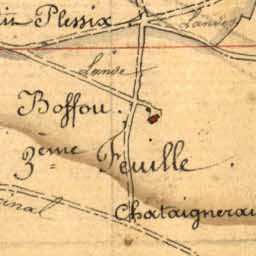 Plessix
Landes
Lande
Boffou.
3ème Feuille
Chataignerai